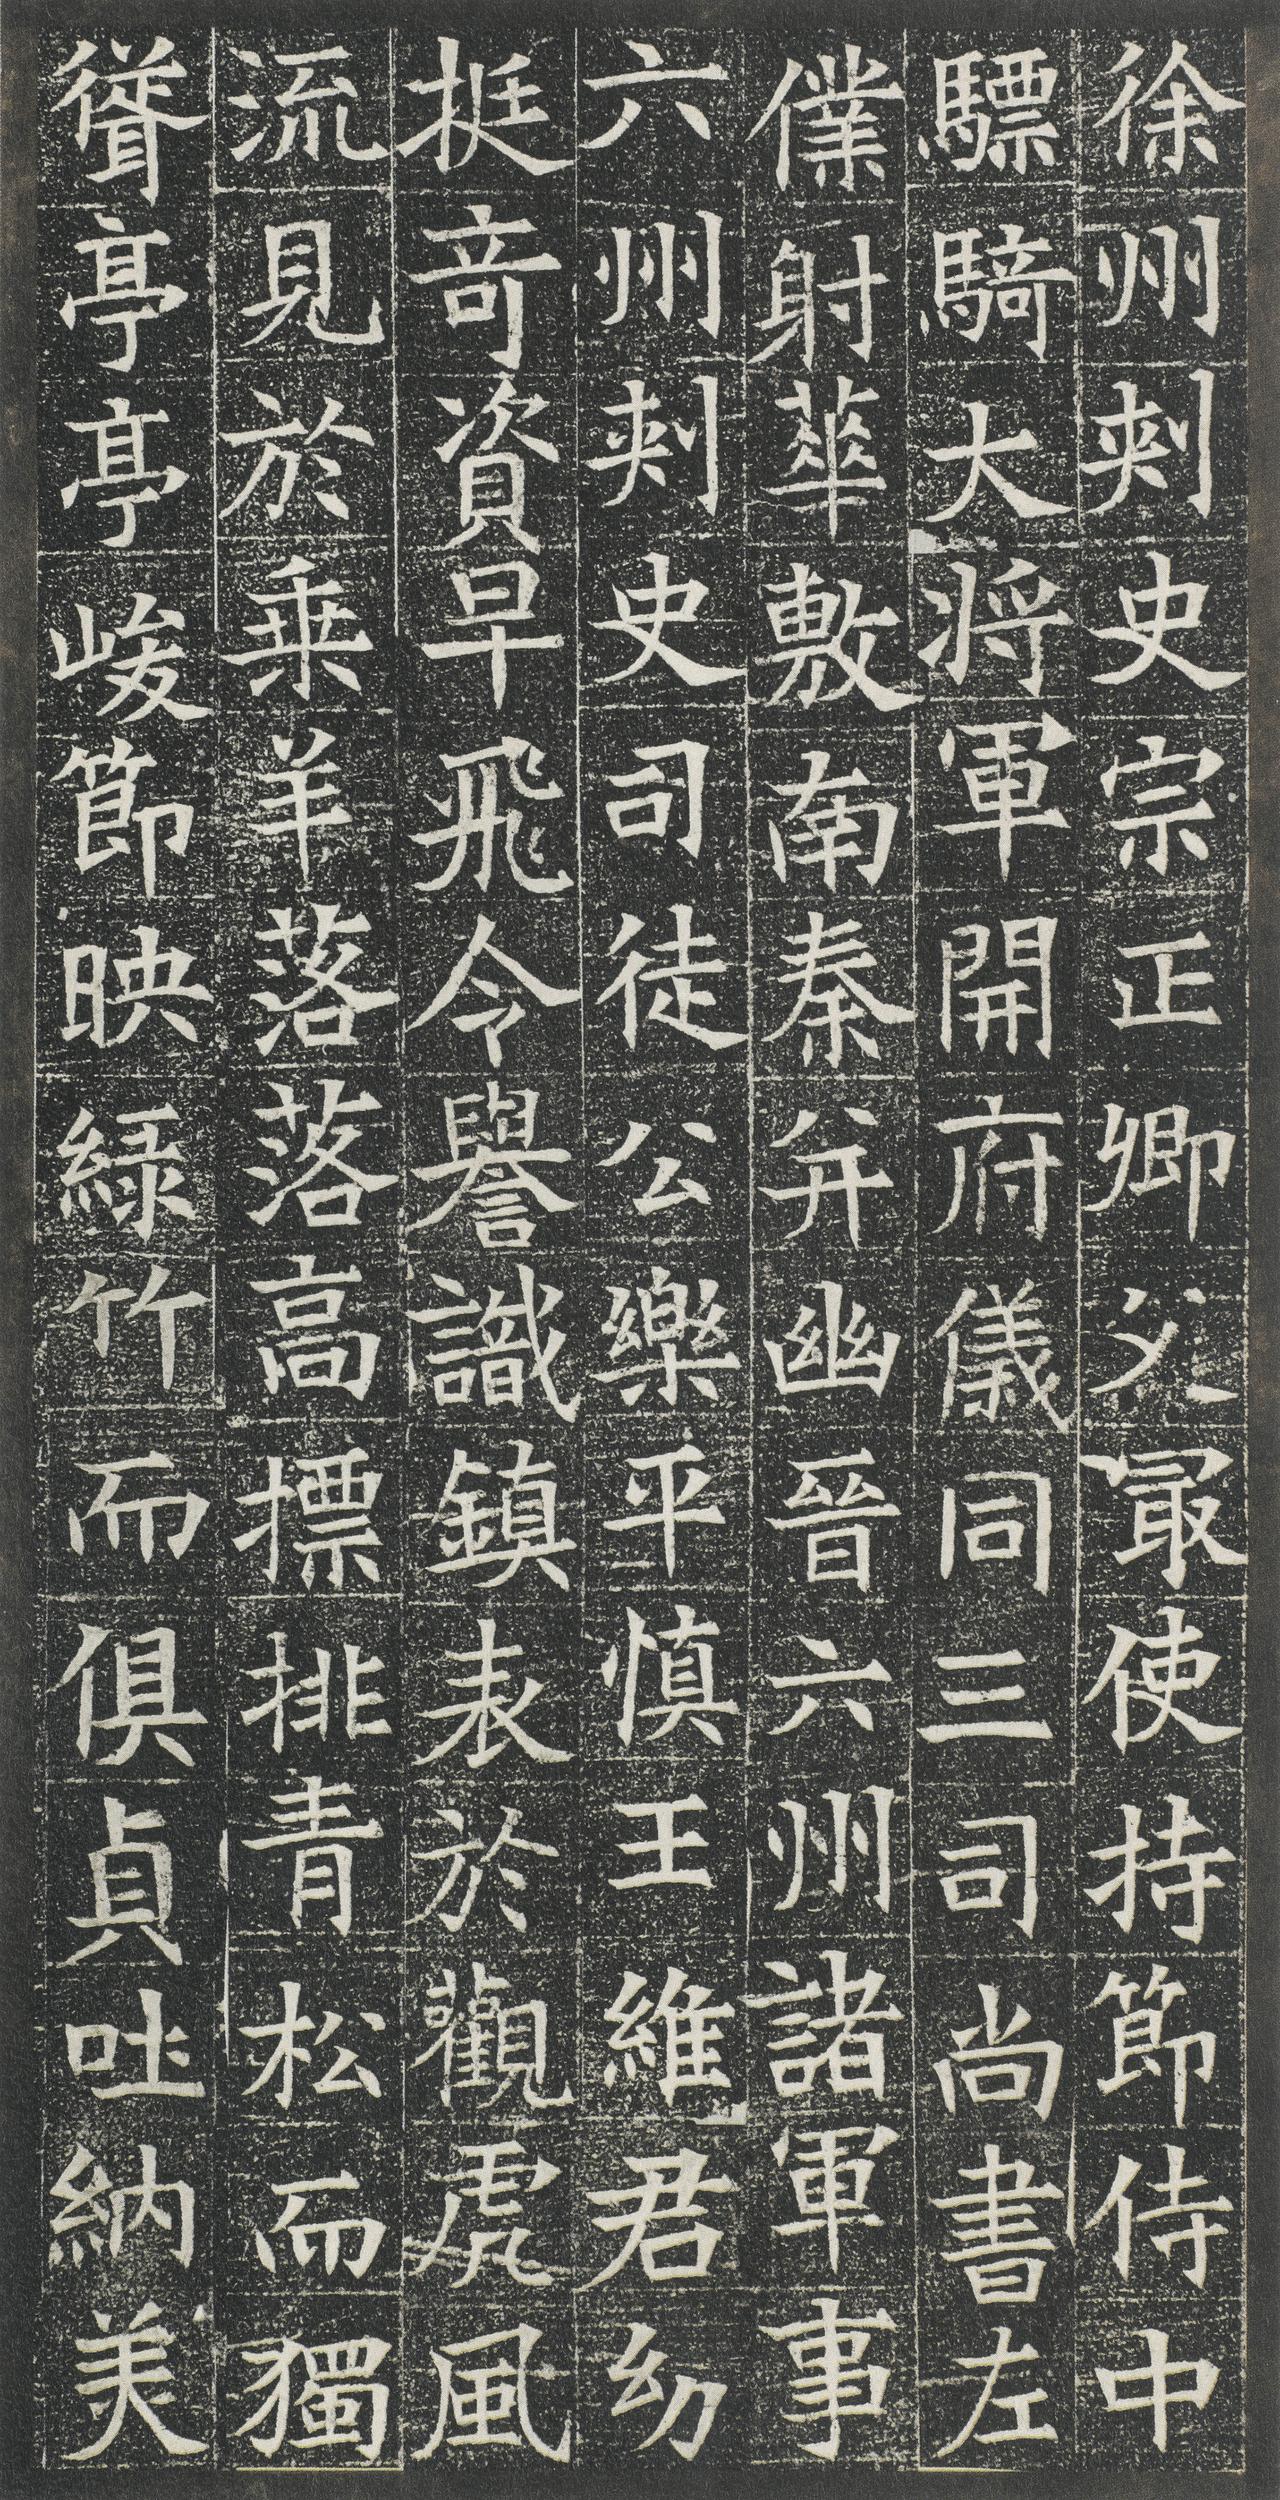 徐州刾史宗正卿父冣使持節侍中
驃騎大將軍開府儀同三司尚書左
僕射華敷南秦并幽晉六州諸軍事
六州刾史司徒公樂平慎王維君幼
挺竒資早飛令譽識鎮表於觀虎風
流見於乗羊落落高摽排青松而獨
聳亭亭峻節映緑竹而俱貞吐納美